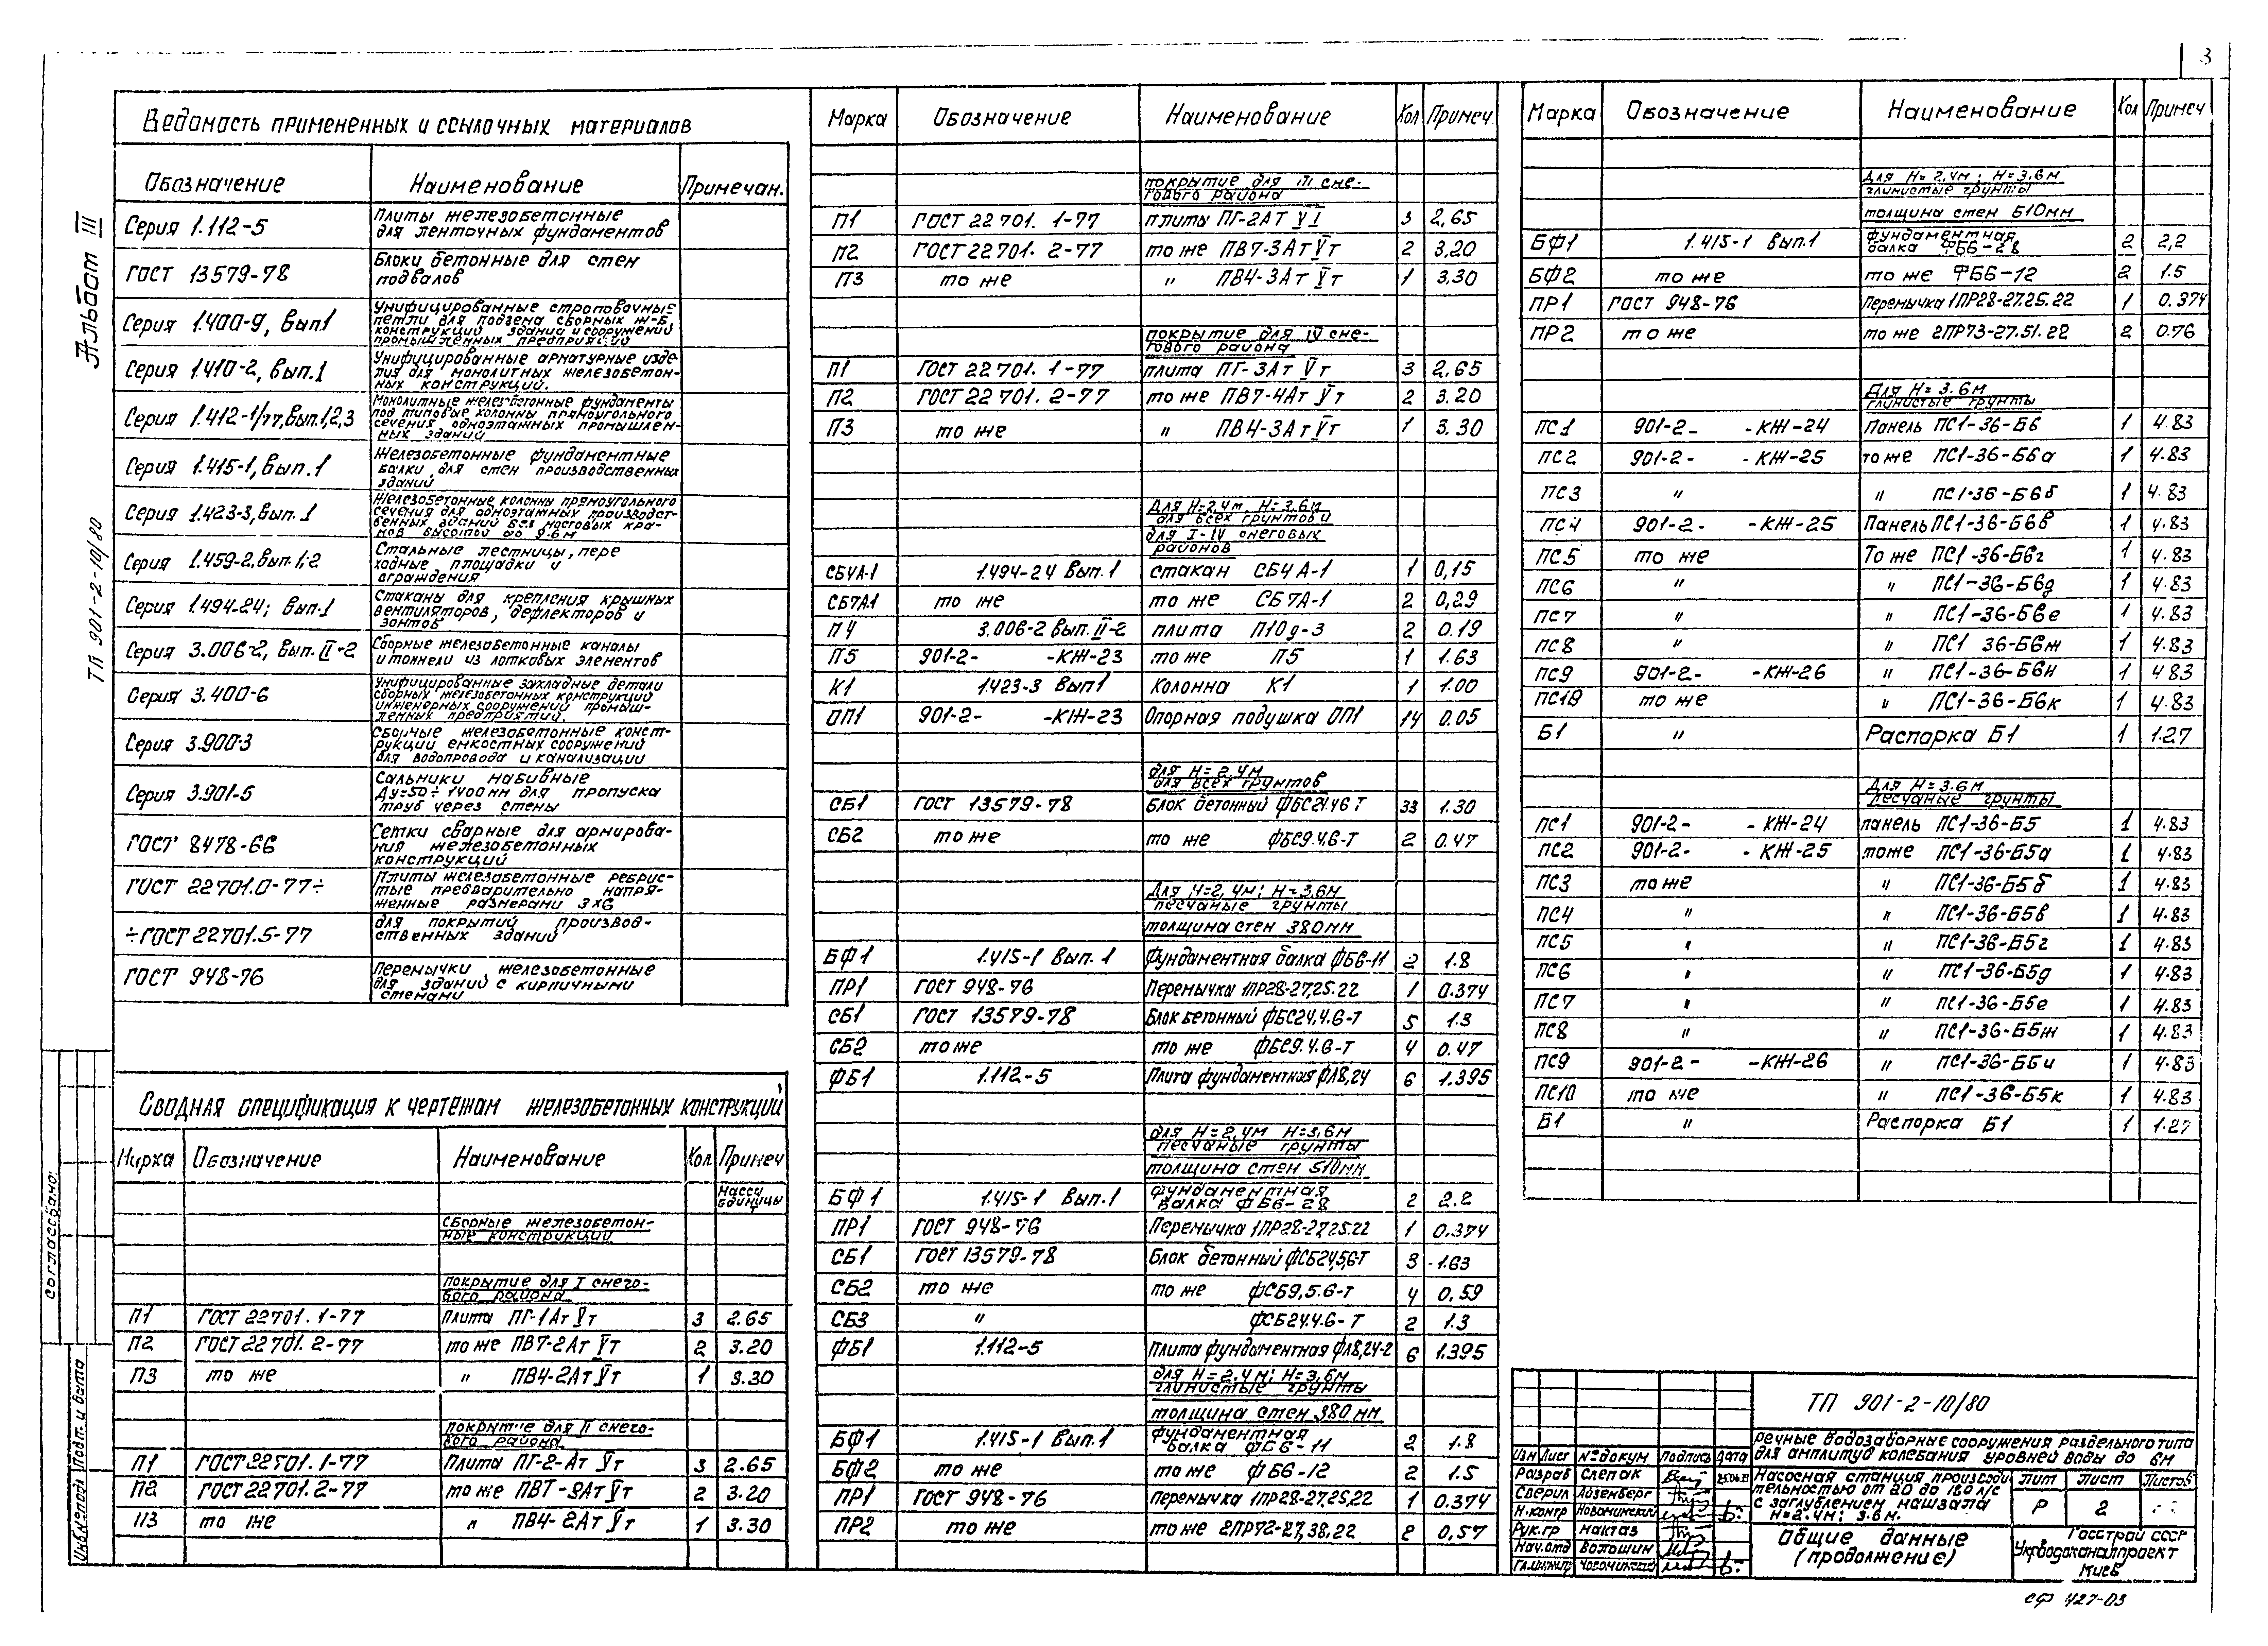 3
Альбом III
ТП 901-2-10/80
Ведомость примененных и ссылочных материалов
Обозначение Наименование Примечан.
Серия 1.112-5 Плиты железобетонные
для ленточных фундаментов
ГОСТ 13579-78 Блоки бетонные для стен
подвалов
Серия 1.400-9, вып1 Унифицированные строповочные
петли для подъема сборных ж-б
конструкций зданий и сооружений
промышленных предприятий
Серия 1.410-2, вып.1 Унифицированные арматурные изде-
лия для монолитных железобетон-
ных конструкций.
Серия 1.412-1/77, вып.1,2,3 Монолитные железобетонные фундаменты
под типовые колонны прямоугольного
сечения одноэтажных промышлен-
ных зданий
Серия 1.415-1, вып.1 Железобетонные фундаментные
балки для стен производственных
зданий
Серия 1.423-3, вып.1 Железобетонные колонны прямоугольного
сечения для одноэтажных производст-
венных зданий без мостовых кра-
нов высотой до 9.6м
Серия 1.459-2, вып.1;2 Стальные лестницы, пере
ходные площадки и
ограждения
Серия 1.494-24; вып.1 Стаканы для крепления крышных
вентиляторов, дефлекторов и
зонтов
Серия 3.006-2, вып. II-2 Сборные железобетонные каналы
и тоннели из лотковых элементов
Серия 3.400-6 Унифицированные закладные детали
сборных железобетонных конструкций
инженерных сооружений промыш-
ленных предприятий.
Серия 3.900-3 Сборные железобетонные конст-
рукции емкостных сооружений
для водопровода и канализации
Серия 3.901-5 Сальники набивные
Ду=50÷1400мм для пропуска
труб через стены
ГОСТ 8478-66 Сетки сварные для армирова-
ния железобетонных
конструкций
ГОСТ 22701.0-77÷ Плиты железобетонные ребрис-
тые предварительно напря-
женные размерами 3х6
÷ГОСТ 22701.5-77 для покрытий производ-
ственных зданий
ГОСТ 948-76 Перемычки железобетонные
для зданий с кирпичными
стенами
Сводная спецификация к чертежам железобетонных конструкций
Марка Обозначение Наименование Кол. Примеч
Масса
единицы
Сборные железобетон-
ные конструкции
покрытие для I снего-
вого района
П1 ГОСТ 22701.1-77 Плита ПГ-1Ат Vт 3 2.65
П2 ГОСТ 22701.2-77 то же ПВ7-2Ат Vт 2 3.20
П3 то же " ПВ4-2Ат Vт 1 3.30
покрытие для II снего-
вого района
П1 ГОСТ 22701.1-77 Плита ПГ-2-Ат Vт 3 2.65
П2 ГОСТ 22701.2-77 то же Ат Vт 2 3.20
П3 то же " ПВ4-2Ат Vт 1 3.30
Марка Обозначение Наименование Кол Примеч.
покрытие для III сне-
гового района
П1 ГОСТ 22701.1-77 плиты ПГ-2АТ 3 2,65
П2 ГОСТ 22701.2-77 то же ПВ7-3Ат Vт 2 3,20
П3 то же " ПВ4-3Ат Vт 1 3,30
покрытие для IV сне-
гового района
П1 ГОСТ 22701.1-77 плита ПГ-3Ат Vт 3 2,65
П2 ГОСТ 22701.2-77 то же ПВ7-4Ат Vт 2 3.20
П3 то же " ПВ4-3Ат Vт 1 3.30
Для H=2,4м, H=3.6м
для всех грунтов и
для I-IV снеговых
районов
СБ4А-1 1.494-24 вып.1 стакан СБ4А-1 1 0,15
СБ7А1 то же то же СБ7А-1 2 0,29
П4 3.006-2 вып. II-2 плита П10д-3 2 0.19
П5 901-2- -КЖ-23 то же П5 1 1.63
К1 1.423-3 Вып1 Колонна К1 1 1.00
ОП1 901-2- -КЖ-23 Опорная подушка ОП1 14 0.05
для H=2,4м
для всех грунтов
СБ1 ГОСТ 13579-78 Блок бетонный ФБС24.4.6Т 33 1.30
СБ2 то же то же ФБС9.4.6-Т 2 0.47
Для H=2,4м; H=3,6м
песчаные грунты
толщина стен 380мм
БФ1 1.415-1 Вып.1 Фундаментная балка ФБ6-11 2 1.8
ПР1 ГОСТ 948-76 Перемычка 1ПР28-27,25.22 1 0.374
СБ1 ГОСТ 13579-78 Блок бетонный ФБС24,4.6-Т 5 1.3
СБ2 то же то же ФБС9.4.6-Т 4 0.47
ФБ1 1.112-5 Плита фундаментная ФЛ8,24 6 1.395
для H=2,4м H=3,6м
песчаные грунты
толщина стен 510мм
БФ1 1.415-1 Вып.1 фундаментная
балка ФБ6-28 2 2.2
ПР1 ГОСТ 948-76 Перемычка 1ПР28-27,25.22 1 0.374
СБ1 ГОСТ 13579-78 Блок бетонный ФСБ24,5,6-Т 3 1.63
СБ2 то же то же ФСБ9,5.6-Т 4 0.59
СБ3 " ФСБ24.4.6-Т 2 1.3
ФБ1 1.112-5 Плита фундаментная ФЛ8,24-2 6 1.395
для H=2,4м; H=3,6м
глинистые грунты
толщина стен 380мм
БФ1 1.415-1 Вып.1 фундаментная
балка ФБ6-11 2 1.8
БФ2 то же то же ФБ6-12 2 1.5
ПР1 ГОСТ 948-76 Перемычка 1ПР28-27,25,22 1 0.374
ПР2 то же то же 2ПР72-27,38.22 2 0,57
Марка Обозначение Наименование Кол Примеч
Для H=2,4м; H=3,6м
глинистые грунты
толщина стен 510мм
БФ1 1.415-1 вып.1 фундаментная
балка ФБ6-28 2 2,2
БФ2 то же то же ФБ6-12 2 1.5
ПР1 ГОСТ 948-76 Перемычка 1ПР28-27.25.22 1 0.374
ПР2 то же то же 2ПР73-27.51.22 2 0.76
Для H=3.6м
глинистые грунты
ПС1 901-2- -КЖ-24 Панель ПС1-36-Б6 1 4.83
ПС2 901-2- -КЖ-25 то же ПС1-36-Б6а 1 4.83
ПС3 " " ПС1-36-Б6б 1 4.83
ПС4 901-2- -КЖ-25 Панель ПС1-36-Б6в 1 4.83
ПС5 то же То же ПС1-36-Б6г 1 4.83
ПС6 " " ПС1-36-Б6д 1 4.83
ПС7 " " ПС1-36-Б6е 1 4.83
ПС8 " " ПС1 36-Б6ж 1 4.83
ПС9 901-2- -КЖ-26 " ПС1-36-Б6и 1 4.83
ПС10 то же " ПС1-36-Б6к 1 4.83
Б1 " Распорка Б1 1 1.27
Для H=3.6м
песчаные грунты
ПС1 901-2- -КЖ-24 панель ПС1-36-Б5 1 4.83
ПС2 901-2- -КЖ-25 то же ПС1-36-Б5а 1 4.83
ПС3 то же " ПС1-36-Б5б 1 4.83
ПС4 " " ПС1-36-Б5в 1 4.83
ПС5 " " ПС1-36-Б5г 1 4.83
ПС6 " " ПС1-36-Б5д 1 4.83
ПС7 " " ПС1-36-Б5е 1 4.83
ПС8 " " ПС1-36-Б5ж 1 4.83
ПС9 901-2- -КЖ-26 " ПС1-36-Б5и 1 4.83
ПС10 то же " ПС1-36-Б5к 1 4.83
Б1 " Распорка Б1 1 1.27
ТП 901-2-10/80
речные водозаборные сооружения раздельного типа
для амплитуд колебания уровней воды до 6м
Изм Лист №докум Подпись Дата
Разраб Слепак
Сверил Айзенберг
Н.контр
Рук.гр
Нач.отд Волошин
Насосная станция производи
тельностью от 20 до 180 л/с
с заглублением машзала
H=2.4м; 3.6м.
Лит Лист Листов
Р 2
Общие данные
(продолжение)
Госстрой СССР
Укрводоканалпроект
Киев
Согласовано:
Инв.№подл Подп. и дата
СФ 427-03